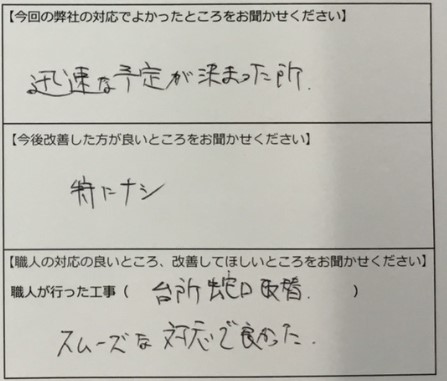 【今回の弊社の対応でよかったところをお聞かせください】
迅速な予定が決まった所.
【今後改善した方が良いところをお聞かせください】
特にナシ
【職人の対応の良いところ、改善してほしいところをお聞かせください】
職人が行った工事（ 台所蛇口取替. ）
スムーズな対応で良かった.